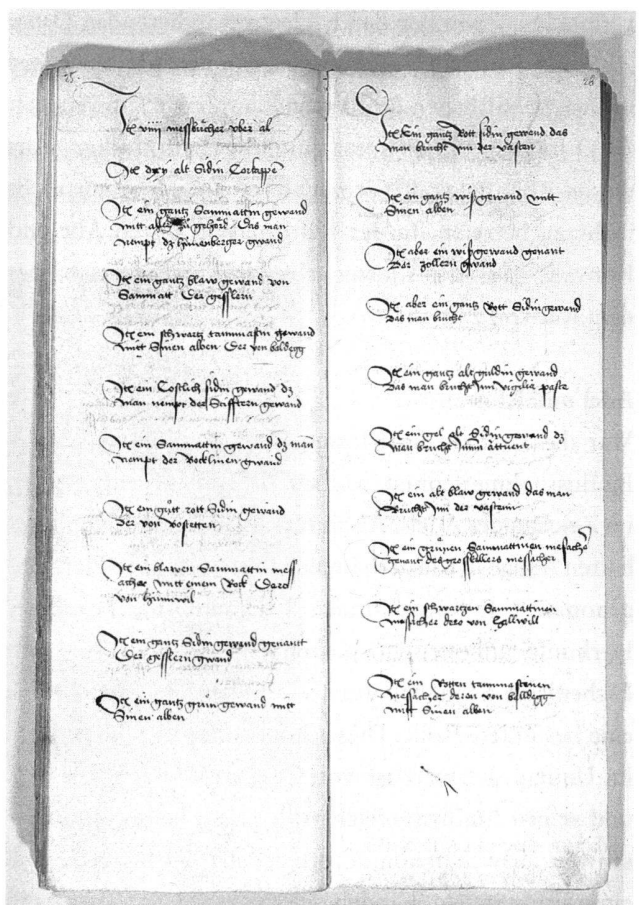 25
Itē viiij messbücher vber al
Itē dxxj alt Sidin Corkappē
Itē ein gantz Sammattin gewand
mitt aller zů gehörd Das man
nempt dz Hünenberger gwand
Itē ein gantz blaw gewand von
Sammatt Der gesslern
Itē ein schwartz tammastin gewand
mitt Sinen alben Der von baldegg
Itē ein Costlich sidin gewand dz
man nempt der Stifftern gewand
Itē ein Sammattin gewand dz man
nempt der Rocklinen gwand
Itē ein gůtt rott Sidin gewand
Der von Bostetten
Itē ein blawen Sammattin mess
acher mitt einem Rock Dero
von hünwil
Itē ein gantz Sidin gewand genant
Der gesslern gwand
Itē ein gantz grün gewand mitt
Sinen alben
26
Itē Ein gantz Rott sidin gewand das
man brücht jnn der vasten
Itē ein gantz wiß gewand mitt
Sinen alben
Itē aber ein wiß gewand genant
Der zollern gwand
Itē aber ein gantz Rott Sidin gewand
das man brücht
Itē ein gantz alt guldin gewand
Das man brucht jnn vigilie pasce
Itē ein gel alt Sidin gewand dz
man brucht jnn attuent
Itē ein alt blaw gewand das man
Brucht jnn der vasten
Itē ein grünen Sammattinen mesachē
genant des grosskellers messacher
Itē ein schwartzen Sammattinen
mesacher dero von hallwill
Itē ein Rotten tammastinen
messacher deren von balldegg
mitt Sinen alben